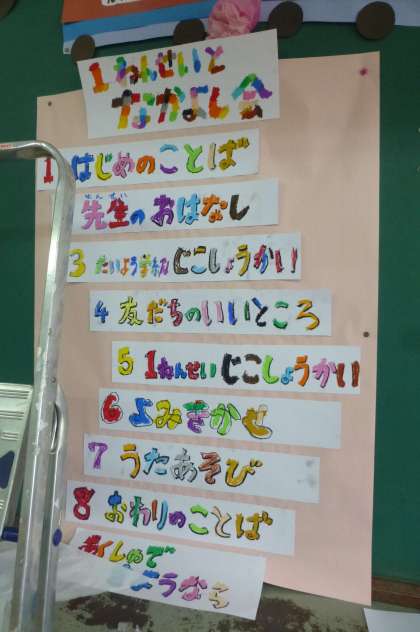 1ねんせいと
なかよし会
1 はじめのことば
先生のおはなし
3 たいよう学級 じこしょうかい
4 友だちのいいところ
5 1ねんせい じこしょうかい
6 よみきかせ
7 うたあそび
8 おわりのことば
あくしゅで
さようなら